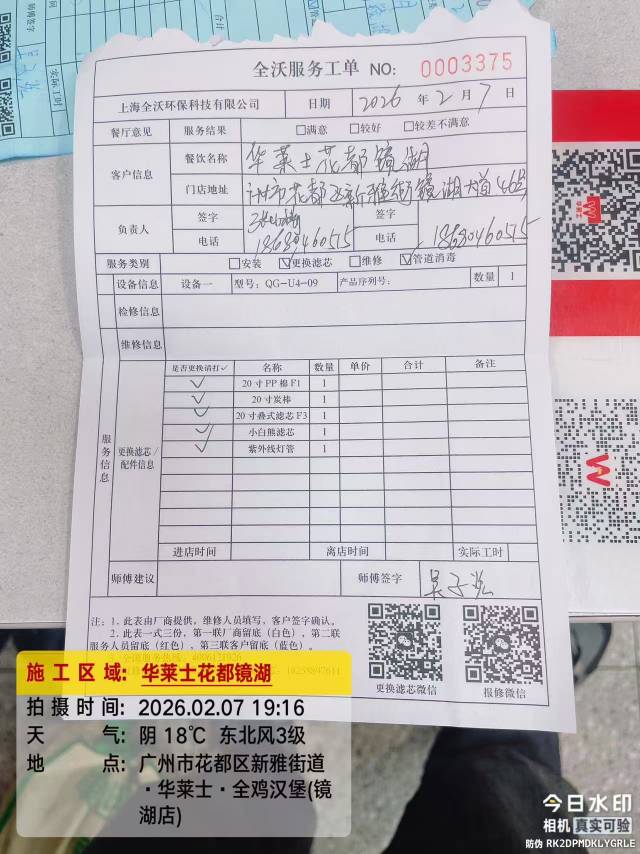 全沃服务工单 NO: 0003375
上海全沃环保科技有限公司 日期 2026 年 2 月 7 日
餐厅意见 服务结果 □满意 □较好 □较差不满意
客户信息 餐饮名称 华莱士花都镜湖
门店地址 广州市花都区新雅街镜湖大道46号
负责人 签字 签字
电话 18680460515 电话 18680460515
服务类别 □安装 ☑更换滤芯 □维修 ☑管道消毒
设备信息 设备一 型号: QG-U4-09 产品序列号: 数量 1
检修信息
维修信息
服务信息 更换滤芯/配件信息
是否更换请打✓ 名称 数量 单价 合计 备注
✓ 20寸PP棉F1 1
✓ 20寸炭棒 1
✓ 20寸叠式滤芯F3 1
✓ 小白熊滤芯 1
✓ 紫外线灯管 1
进店时间 离店时间 实际工时
师傅建议 师傅签字
注: 1、此表由厂商提供。维修人员填写,客户签字确认。
2、此表一式三份,第一联厂商留底(白色)、第二联
服务人员留底(红色)、第三联客户留底(蓝色)。
更换滤芯微信 报修微信
施工区域: 华莱士花都镜湖
拍摄时间: 2026.02.07 19:16
天气: 阴 18℃ 东北风3级
地点: 广州市花都区新雅街道
·华莱士·全鸡汉堡(镜
湖店)
今日水印
相机 真实可验
防伪 RK2DPMDKLYGRLE